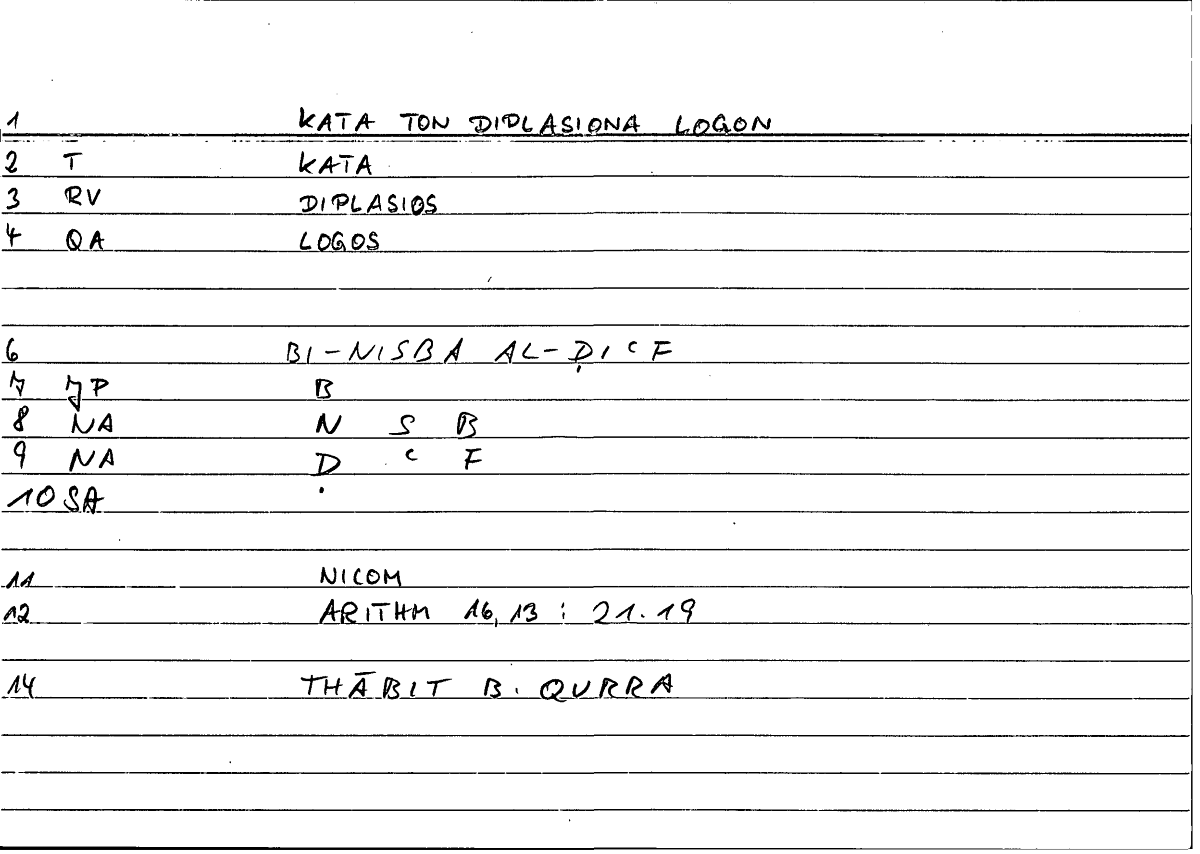 1 KATA TON DIPLASIONA LOGON
2 T KATA
3 RV DIPLASIOS
4 QA LOGOS
6 BI-NISBA AL-ḌIʿF
7 JP B
8 NA N S B
9 NA Ḍ ʿ F
10 SA
11 NICOM
12 ARITHM 16,13 : 21.19
14 THĀBIT B. QURRA